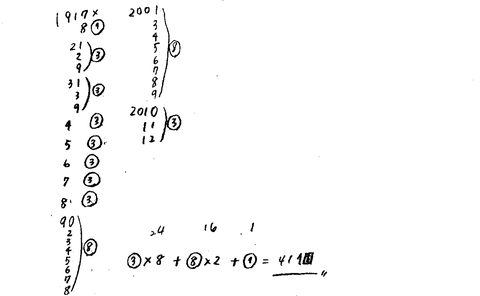 1917×
8 ①
21
2 ③
9
31
3 ③
9
4 ③
5 ③
6 ③
7 ③
8 ③
90
2
3
4 ⑧
5
6
7
8
2001
3
4
5 ⑧
6
7
8
9
2010
11 ③
12
24 16 1
③×8 + ⑧×2 + ① = 41個